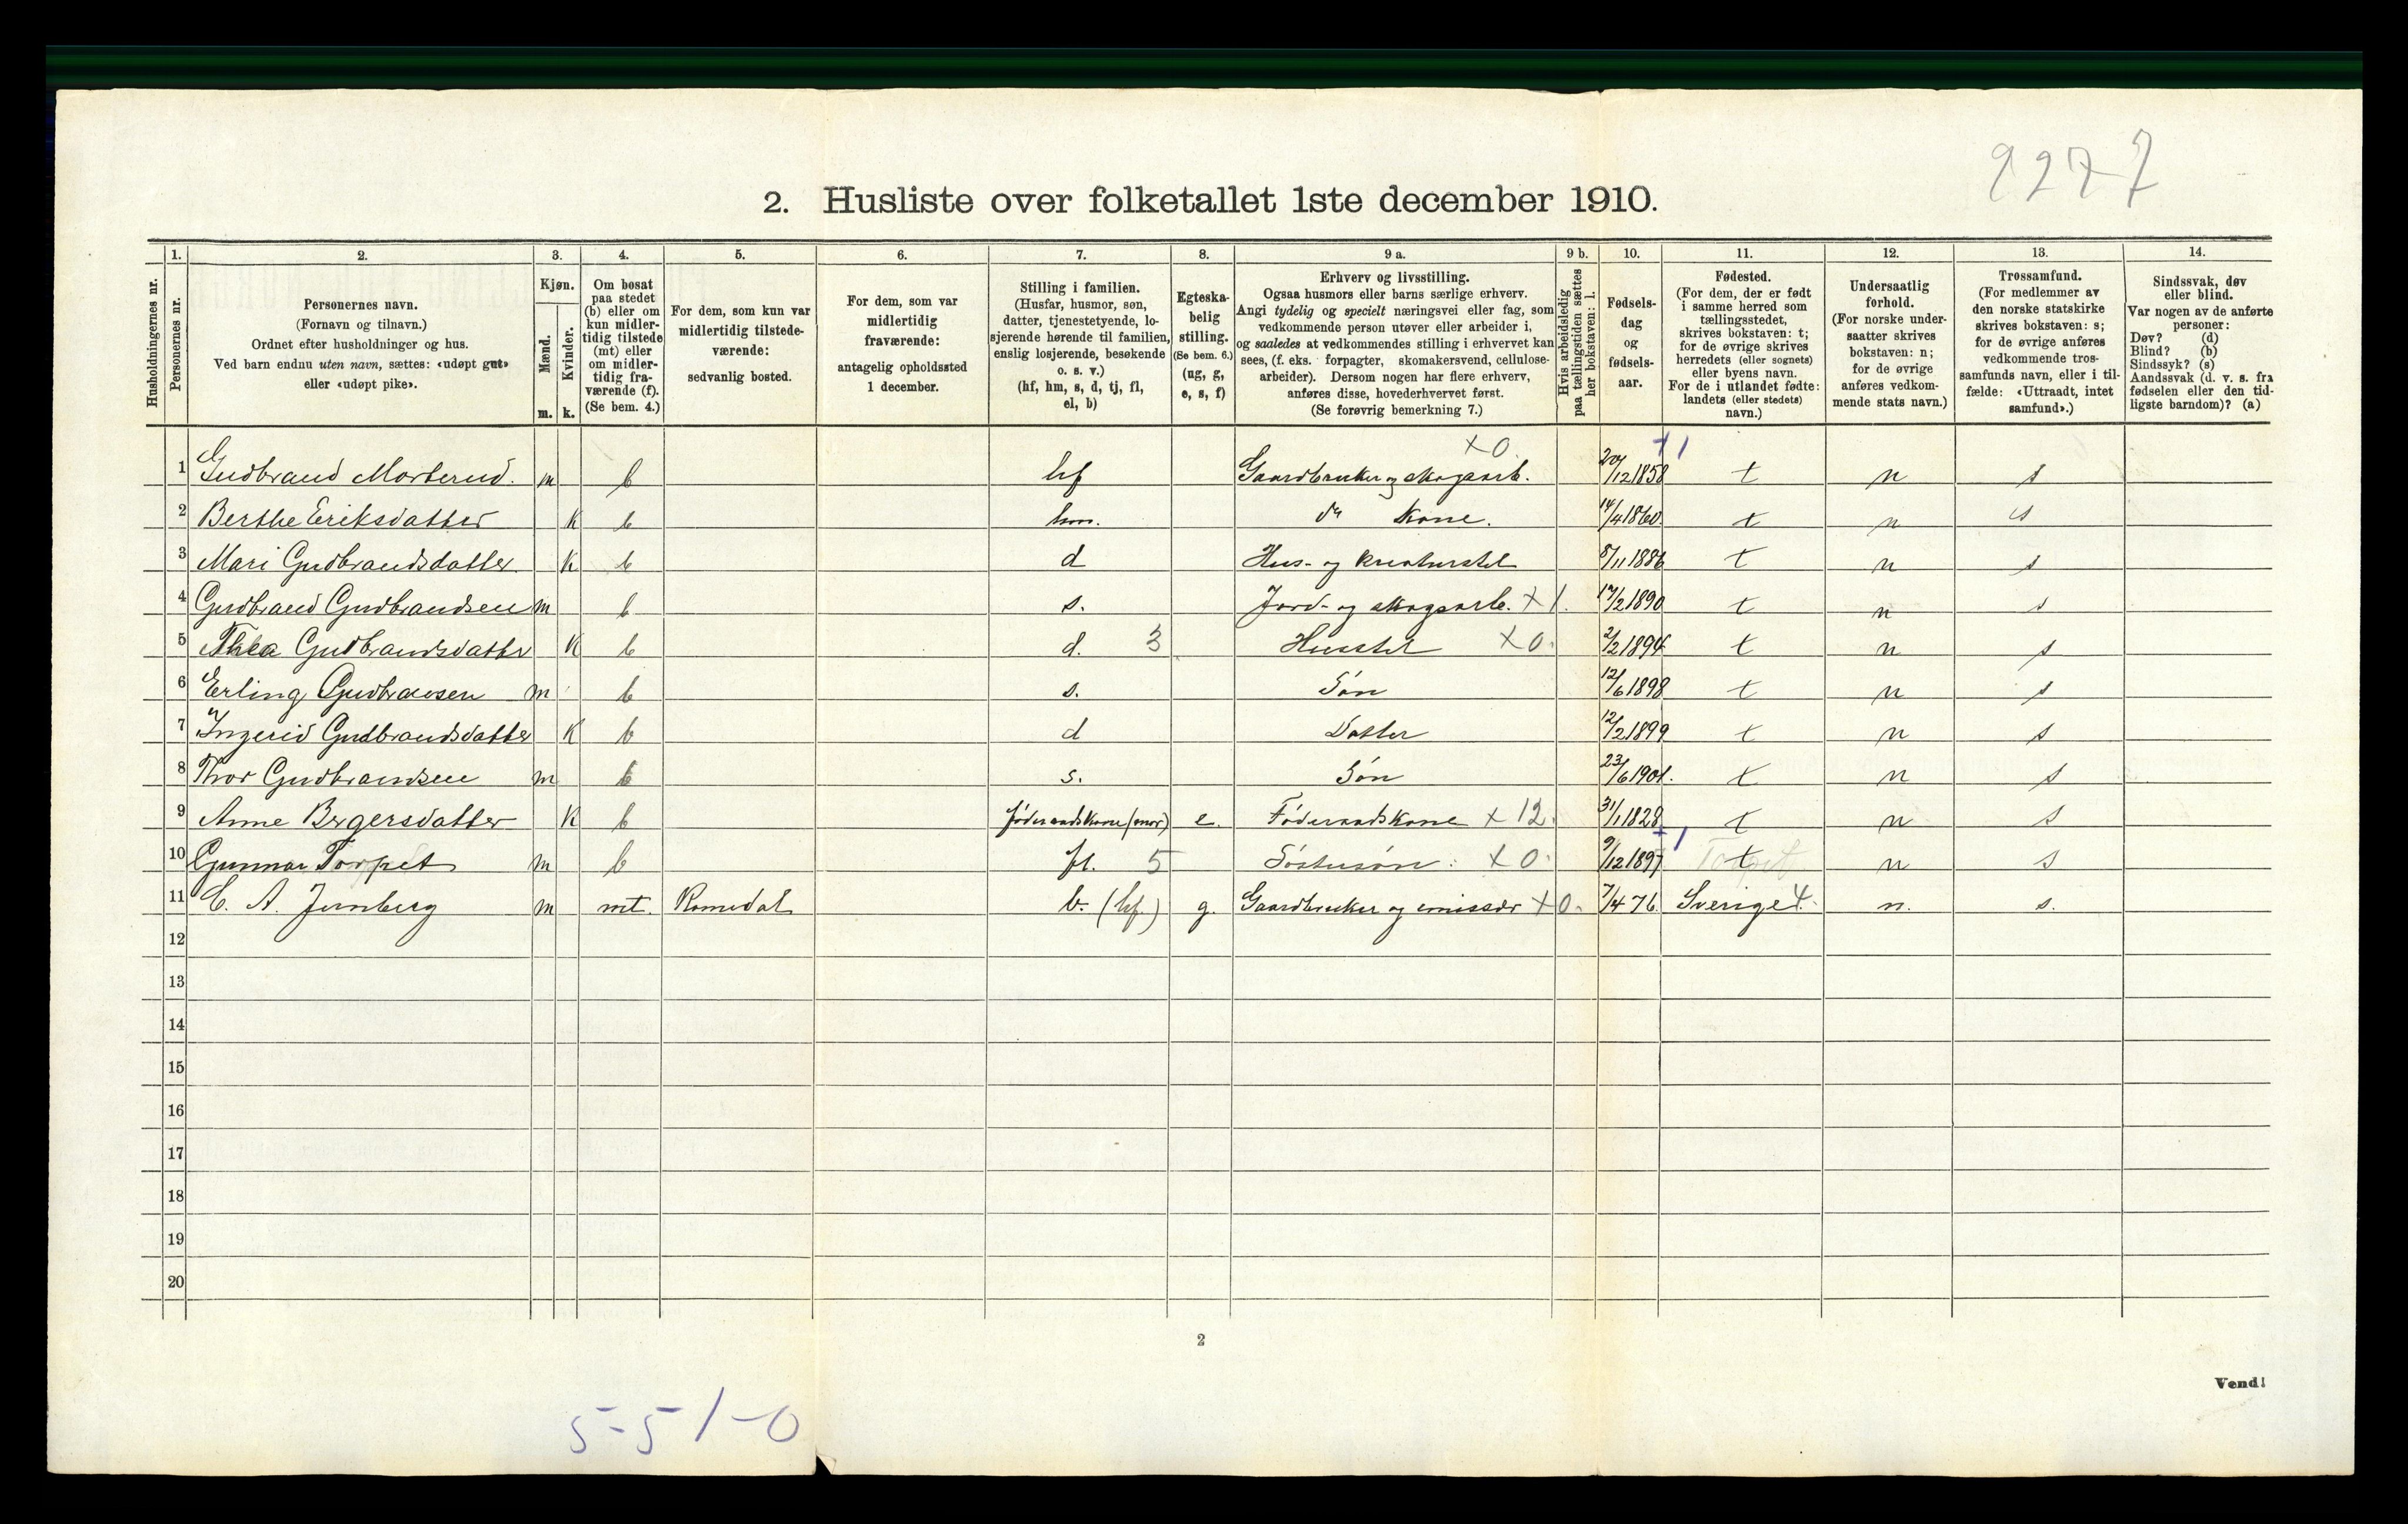 9277
2. Husliste over folketallet 1ste december 1910.
Husholdningernes nr.
1. Personernes nr.
2. Personernes navn.
(Fornavn og tilnavn.)
Ordnet efter husholdninger og hus.
Ved barn endnu uten navn, sættes: «udøpt gut»
eller «udøpt pike».
3. Kjøn.
Mænd. m.
Kvinder. k.
4. Om bosat
paa stedet
(b) eller om
kun midler-
tidig tilstede
(mt) eller
om midler-
tidig fra-
værende (f).
(Se bem. 4.)
5. For dem, som kun var
midlertidig tilstede-
værende:
sedvanlig bosted.
6. For dem, som var
midlertidig
fraværende:
antagelig opholdssted
1 december.
7. Stilling i familien.
(Husfar, husmor, søn,
datter, tjenestetyende, lo-
sjerende hørende til familien,
enslig losjerende, besøkende
o. s. v.)
(hf, hm, s, d, tj, fl,
el, b)
8. Egteska-
belig
stilling.
(Se bem. 6.)
(ug, g,
e, s, f)
9 a. Erhverv og livsstilling.
Ogsaa husmors eller barns særlige erhverv.
Angi tydelig og specielt næringsvei eller fag, som
vedkommende person utøver eller arbeider i,
og saaledes at vedkommendes stilling i erhvervet kan
sees, (f. eks. forpagter, skomakersvend, cellulose-
arbeider). Dersom nogen har flere erhverv,
anføres disse, hovederhvervet først.
(Se forøvrig bemerkning 7.)
9 b. Hvis arbeidsledig
paa tællingstiden sættes
her bokstaven: l.
10. Fødsels-
dag
og
fødsels-
aar.
11. Fødested.
(For dem, der er født
i samme herred som
tællingsstedet,
skrives bokstaven: t;
for de øvrige skrives
herredets (eller sognets)
eller byens navn.
For de i utlandet fødte:
landets (eller stedets)
navn.)
12. Undersaatlig
forhold.
(For norske under-
saatter skrives
bokstaven: n;
for de øvrige
anføres vedkom-
mende stats navn.)
13. Trossamfund.
(For medlemmer av
den norske statskirke
skrives bokstaven: s;
for de øvrige anføres
vedkommende tros-
samfunds navn, eller i til-
fælde: «Uttraadt, intet
samfund».)
14. Sindssvak, døv
eller blind.
Var nogen av de anførte
personer:
Døv? (d)
Blind? (b)
Sindssyk? (s)
Aandssvak (d. v. s. fra
fødselen eller den tid-
ligste barndom)? (a)
1 Gudbrand Morterud. m b hf Gaardbruker og skogsarb. x0. 20/12 1858 t n s
2 Berthe Eriksdatter k b hm. do kone. 14/4 1860. t n s
3 Mari Gudbrandsdatter. k b d Hus- og kreaturstel 8/11 1886 t n s
4 Gudbrand Gudbrandsen m b s. Jord- og skogsarb. x1. 17/2 1890 t n s
5 Thea Gudbrandsdatter k b d. 3 Husstel x0. 2/2 1894 t n s
6 Erling Gudbransen m b s. Søn 12/6 1898 t n s
7 Ingerid Gudbrandsdatter k b d Datter 12/2 1899 t n s
8 Thor Gudbrandsen m b s. Søn 23/6 1901. t n s
9 Anne Bergersdatter k b føderaadskone (mor) e. Føderaadskone x12. 31/1 1828 t n s
10 Gunnar Torpet m b fl. 5 Søstersøn: x0. 9/12 1897 t n s
11 C. A. Jernberg m mt. Romedal b. (hf.) g. Gaardbruker og emissær x0. 7/4 76. Sverige 4. n. s.
12
13
14
15
16
17
18
19
20
2
Vend!
5-5 1-0